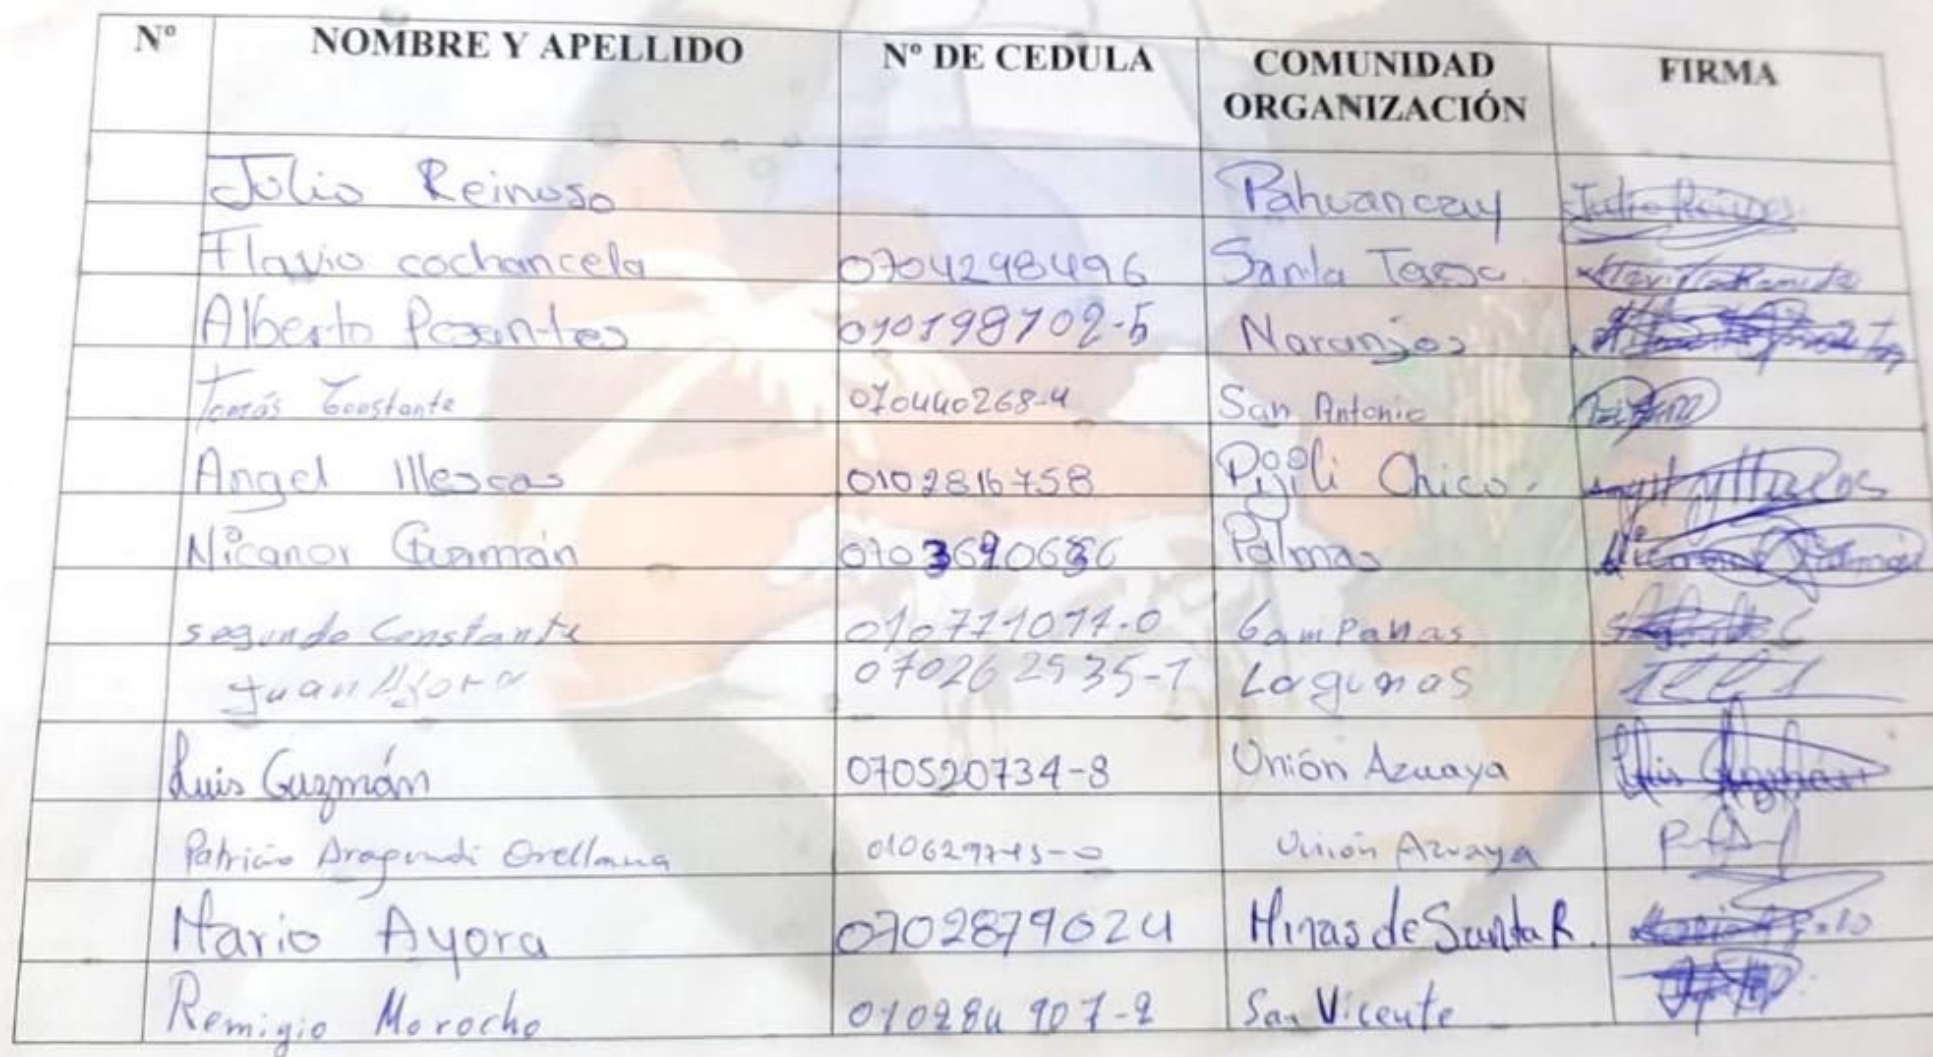 Nº NOMBRE Y APELLIDO Nº DE CEDULA COMUNIDAD ORGANIZACIÓN FIRMA
Julio Reinoso Pahuancay Julio Reinoso
Flavio cochancela 0704298496 Santa Teresa
Alberto Pesantes 010198702-5 Naranjos
Tomás Constante 070440268-4 San Antonio
Angel Illescas 0102816758 Pijili Chico.
Nicanor Guzmán Palmas Nicanor Guzmán
segundo Constante 010771077-0 Campanas
Juan Ayora 070262535-1 Lagunas
Luis Guzmán 070520734-8 Unión Azuaya Luis Guzmán
Patricio Aragundi Orellana Unión Azuaya
Mario Ayora 0702879024 Minas de Santa R.
Remigio Morocho 010284907-2 San Vicente